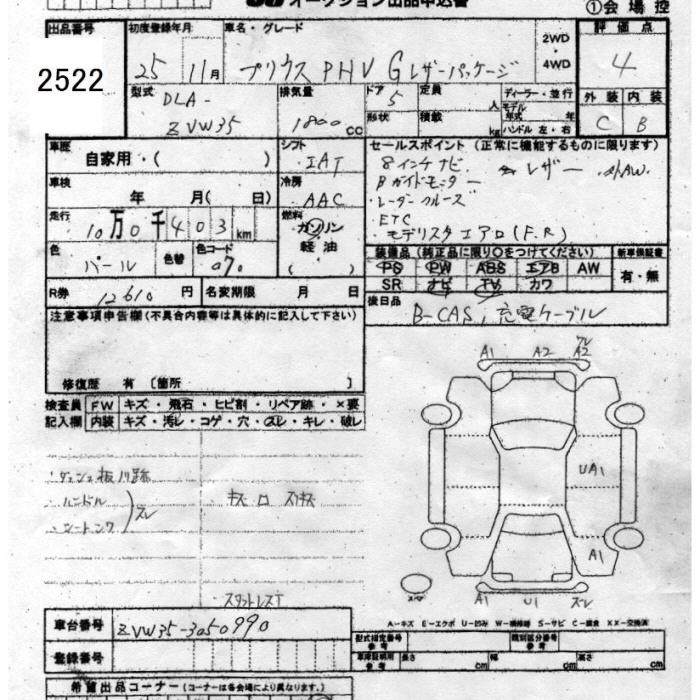 オークション出品申込書
①会場控
出品番号 初度登録年月 車名・グレード 評価点
2522 25 11月 プリウス PHV G レザーパッケージ 2WD・4WD 4
型式 DLA- ZVW35
排気量 1800 cc
ドア 5 定員 人 ディーラー・並行
形状 積載 kg モデル年式 年
ハンドル 左・右
外装 内装
C B
車歴 自家用・( )
シフト IAT
セールスポイント (正常に機能するものに限ります)
8インチナビ レザー
車検 年 月( 日)
冷房 AAC
Bガイドモニター
・レーダークルーズ
ETC
・モデリスタエアロ(F.R)
走行 10万0千403km
燃料 ガソリン 軽油 ( )
色 パール 色替 色コード 070
装備品 (純正品に限り○をつけてください) 新車保証書
PS PW ABS エアB AW
SR ナビ TV カワ
有・無
R券 12610 円 名変期限 月 日
後日品 B-CAS, 充電ケーブル
注意事項申告欄(不具合内容等は具体的に記入して下さい)
修復歴 有 〔箇所 〕
検査員記入欄 FW キズ・飛石・ヒビ割・リペア跡・×要
内装 キズ・汚レ・コゲ・穴・スレ・キレ・破レ
A1 A2 A2
・ハンドル
スレ
UA1
A1
A1 U1 スレ
スタットレスT
A-キズ E-エクボ U-凹み W-補修跡 S-サビ C-腐食 XX-交換済
車台番号 ZVW35-3050990
登録番号
型式指定番号 参考 類別区分番号 参考
車庫証明用 参考 長さ cm 幅 cm 高さ cm
希望出品コーナー(コーナーは各会場により異なります。)